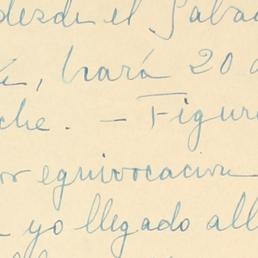 desde el Sabad
, hará 20 d
che. — Figur
or equivocacion
yo llegado all